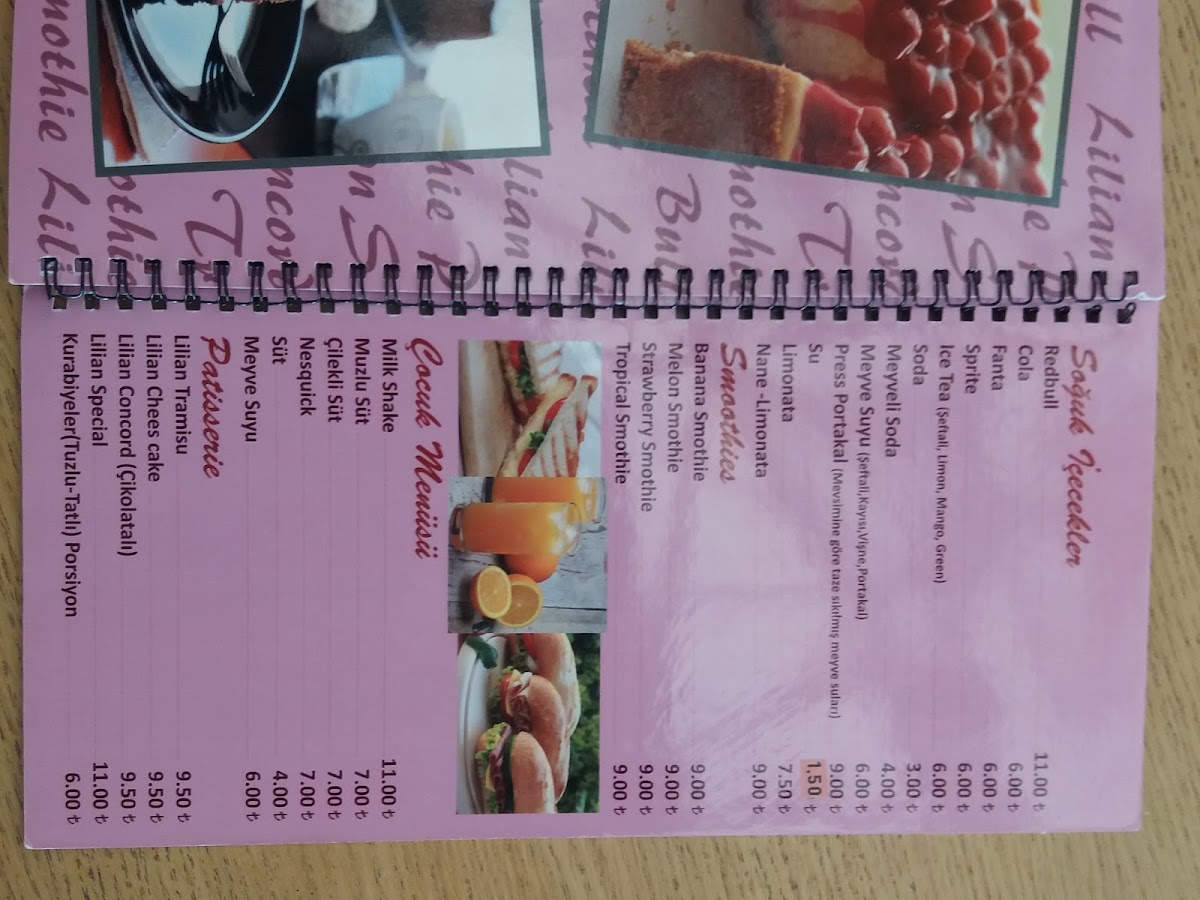 Soğuk İçecekler
Redbull 11.00 ₺
Cola 6.00 ₺
Fanta 6.00 ₺
Sprite 6.00 ₺
Ice Tea (Şeftali, Limon, Mango, Green) 6.00 ₺
Soda 3.00 ₺
Meyveli Soda 4.00 ₺
Meyve Suyu (Şeftali,Kayısı,Vişne,Portakal) 6.00 ₺
Press Portakal (Mevsimine göre taze sıkılmış meyve suları) 9.00 ₺
Su 1.50 ₺
Limonata 7.50 ₺
Nane -Limonata 9.00 ₺
Smoothies
Banana Smothie 9.00 ₺
Melon Smothie 9.00 ₺
Strawberry Smothie 9.00 ₺
Tropical Smothie 9.00 ₺
Çocuk Menüsü
Milk Shake 11.00 ₺
Muzlu Süt 7.00 ₺
Çilekli Süt 7.00 ₺
Nesquick 7.00 ₺
Süt 4.00 ₺
Meyve Suyu 6.00 ₺
Patisserie
Lilian Tramisu 9.50 ₺
Lilian Chees cake 9.50 ₺
Lilian Concord (Çikolatalı) 9.50 ₺
Lilian Special 11.00 ₺
Kurabiyeler(Tuzlu-Tatlı) Porsiyon 6.00 ₺